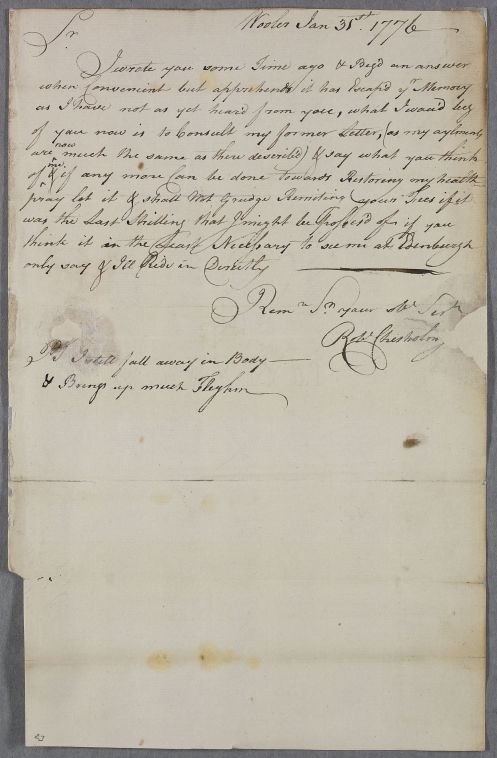 Wooler Jan 31st. 1776
Sr
I wrote you some Time ago & Beg'd an answer
when Convenient but apprehends it has Escap'd yr Memory
as I have not as yet heard from you, what I woud beg
of you now is to Consult my former Letter, (as my aylments
are now much the same as there described) & say what you think
of me & if any more Can be done towards Restoring my health
pray let it & shall not Grudge Remitting your Fees if it
was the Last Shilling that I might be Possess'd of or if you
think it in the Least Necessary to see me at Edenburgh
only say & I'll Ride in Directly
Remn Sr your obt Sert
Robt Chisholm
PS I still fall away in Body
& Brings up much Fleghm
23